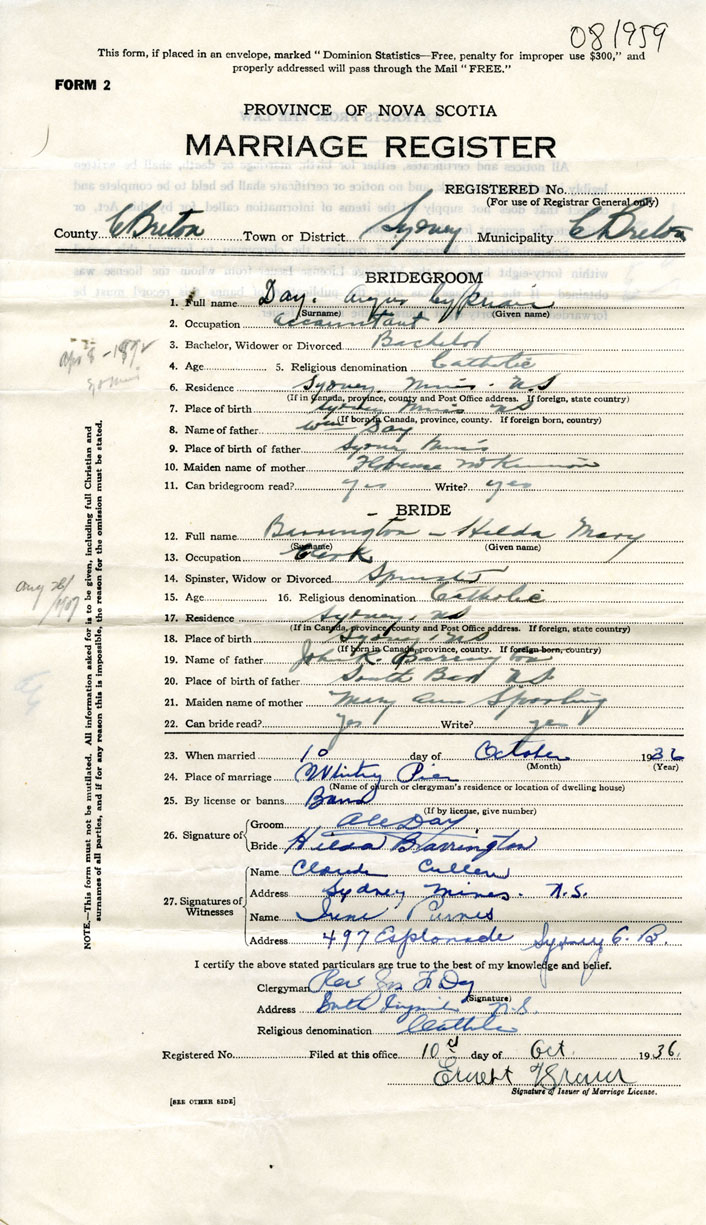 081959
This form, if placed in an envelope, marked "Dominion Statistics—Free, penalty for improper use $300," and
properly addressed will pass through the Mail "FREE."
FORM 2
PROVINCE OF NOVA SCOTIA
MARRIAGE REGISTER
REGISTERED No.
(For use of Registrar General only)
County C Breton Town or District Sydney Municipality C Breton
BRIDEGROOM
1. Full name Day. Angus
(Surname) (Given name)
2. Occupation accountant
3. Bachelor, Widower or Divorced Bachelor
4. Age 5. Religious denomination Catholic
6. Residence Sydney Mines N.S
(If in Canada, province, county and Post Office address. If foreign, state country)
7. Place of birth Sydney Mines NS
(If born in Canada, province, county. If foreign born, country)
8. Name of father Wm Day
9. Place of birth of father Sydney Mines
10. Maiden name of mother Florence McKinnon
11. Can bridegroom read? yes Write? yes
BRIDE
12. Full name Barrington - Hilda Mary
(Surname) (Given name)
13. Occupation Clerk
14. Spinster, Widow or Divorced Spinster
15. Age 16. Religious denomination Catholic
17. Residence Sydney, NS
(If in Canada, province, county and Post Office address. If foreign, state country)
18. Place of birth Sydney, NS
(If born in Canada, province, county. If foreign born, country)
19. Name of father John K. Barrington
20. Place of birth of father South Bar N.S
21. Maiden name of mother Mary Ann
22. Can bride read? yes Write? yes
23. When married 10 day of October 1936
(Month) (Year)
24. Place of marriage Whitney Pier
(Name of church or clergyman's residence or location of dwelling house)
25. By license or banns Banns
(If by license, give number)
26. Signature of
Groom Day
Bride Hilda Barrington
27. Signatures of Witnesses
Name Claude Cullen
Address Sydney Mines. N.S.
Name Irene
Address 497 Esplanade Sydney C. B.
I certify the above stated particulars are true to the best of my knowledge and belief.
Clergyman Rev Day
(Signature)
Address N.S.
Religious denomination Catholic
Registered No. Filed at this office 10 day of Oct. 1936.
Signature of Issuer of Marriage License.
[SEE OTHER SIDE]
NOTE.—This form must not be mutilated. All information asked for is to be given, including full Christian and
surnames of all parties, and if for any reason this is impossible, the reason for the omission must be stated.